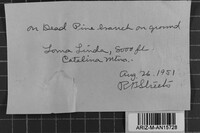 on Dead Pine branch on ground
Loma Linda, 8000 ft
Catalina Mtns.
Aug 26. 1951
RBStreets
ARIZ-M-AN15728